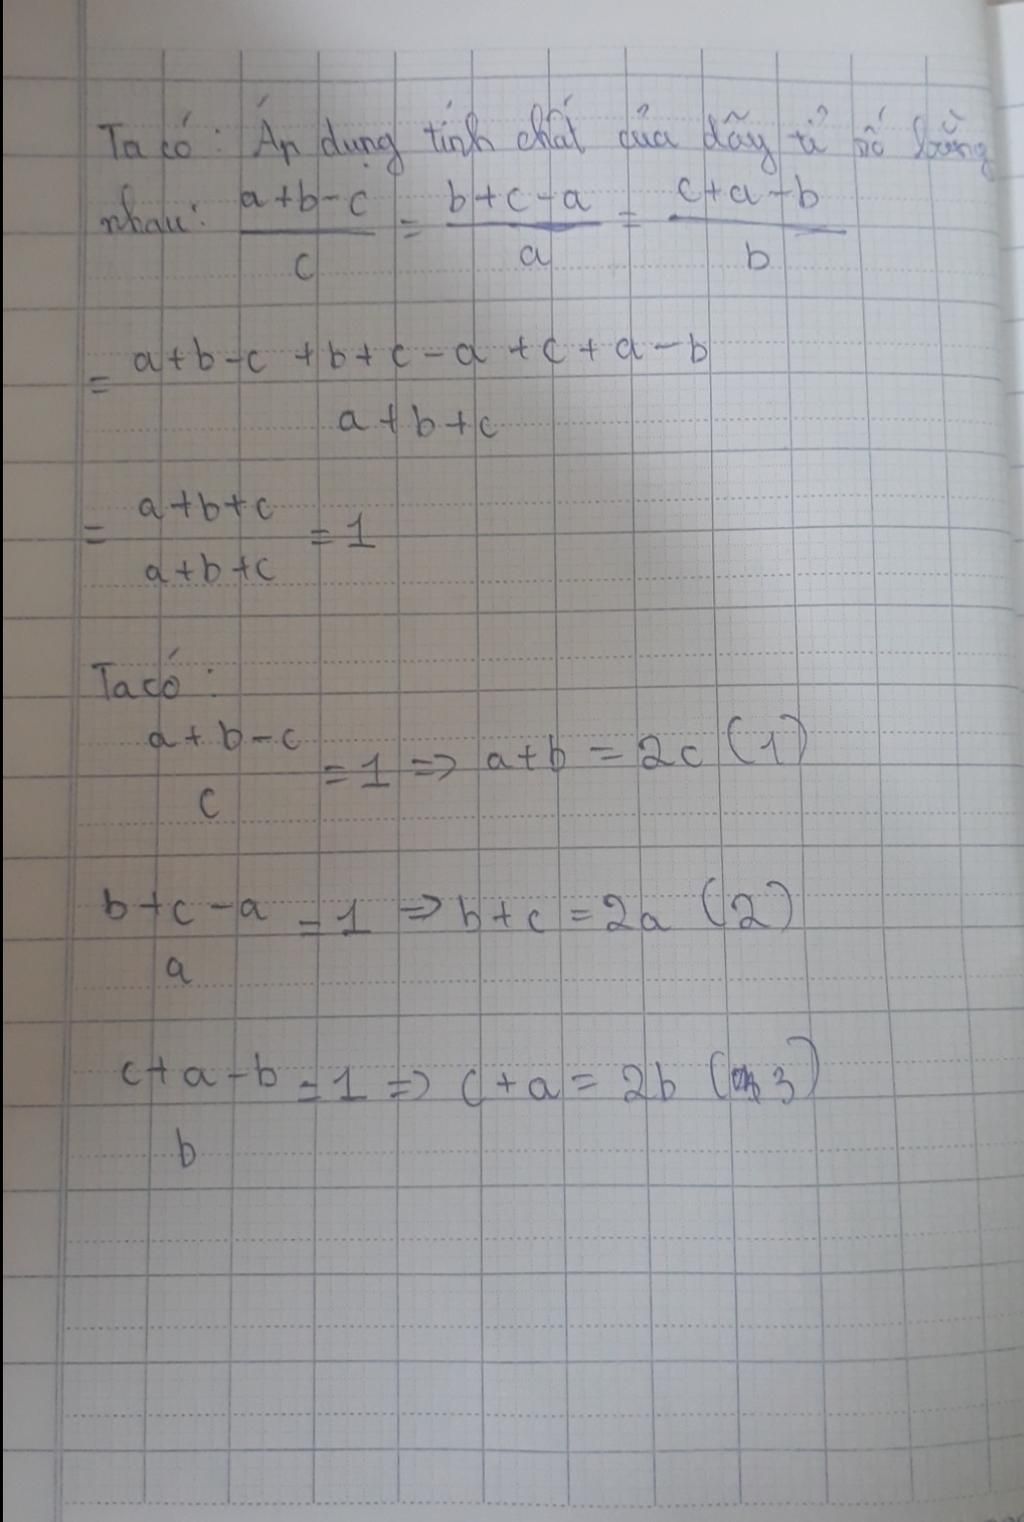 Ta có: Áp dụng tính chất của dãy tỉ số bằng
nhau: a+b-c/c = b+c-a/a = c+a-b/b
= a+b-c+b+c-a+c+a-b/a+b+c
= a+b+c/a+b+c = 1
Ta có:
a+b-c/c = 1 => a+b = 2c (1)
b+c-a/a = 1 => b+c = 2a (2)
c+a-b/b = 1 => c+a = 2b (3)